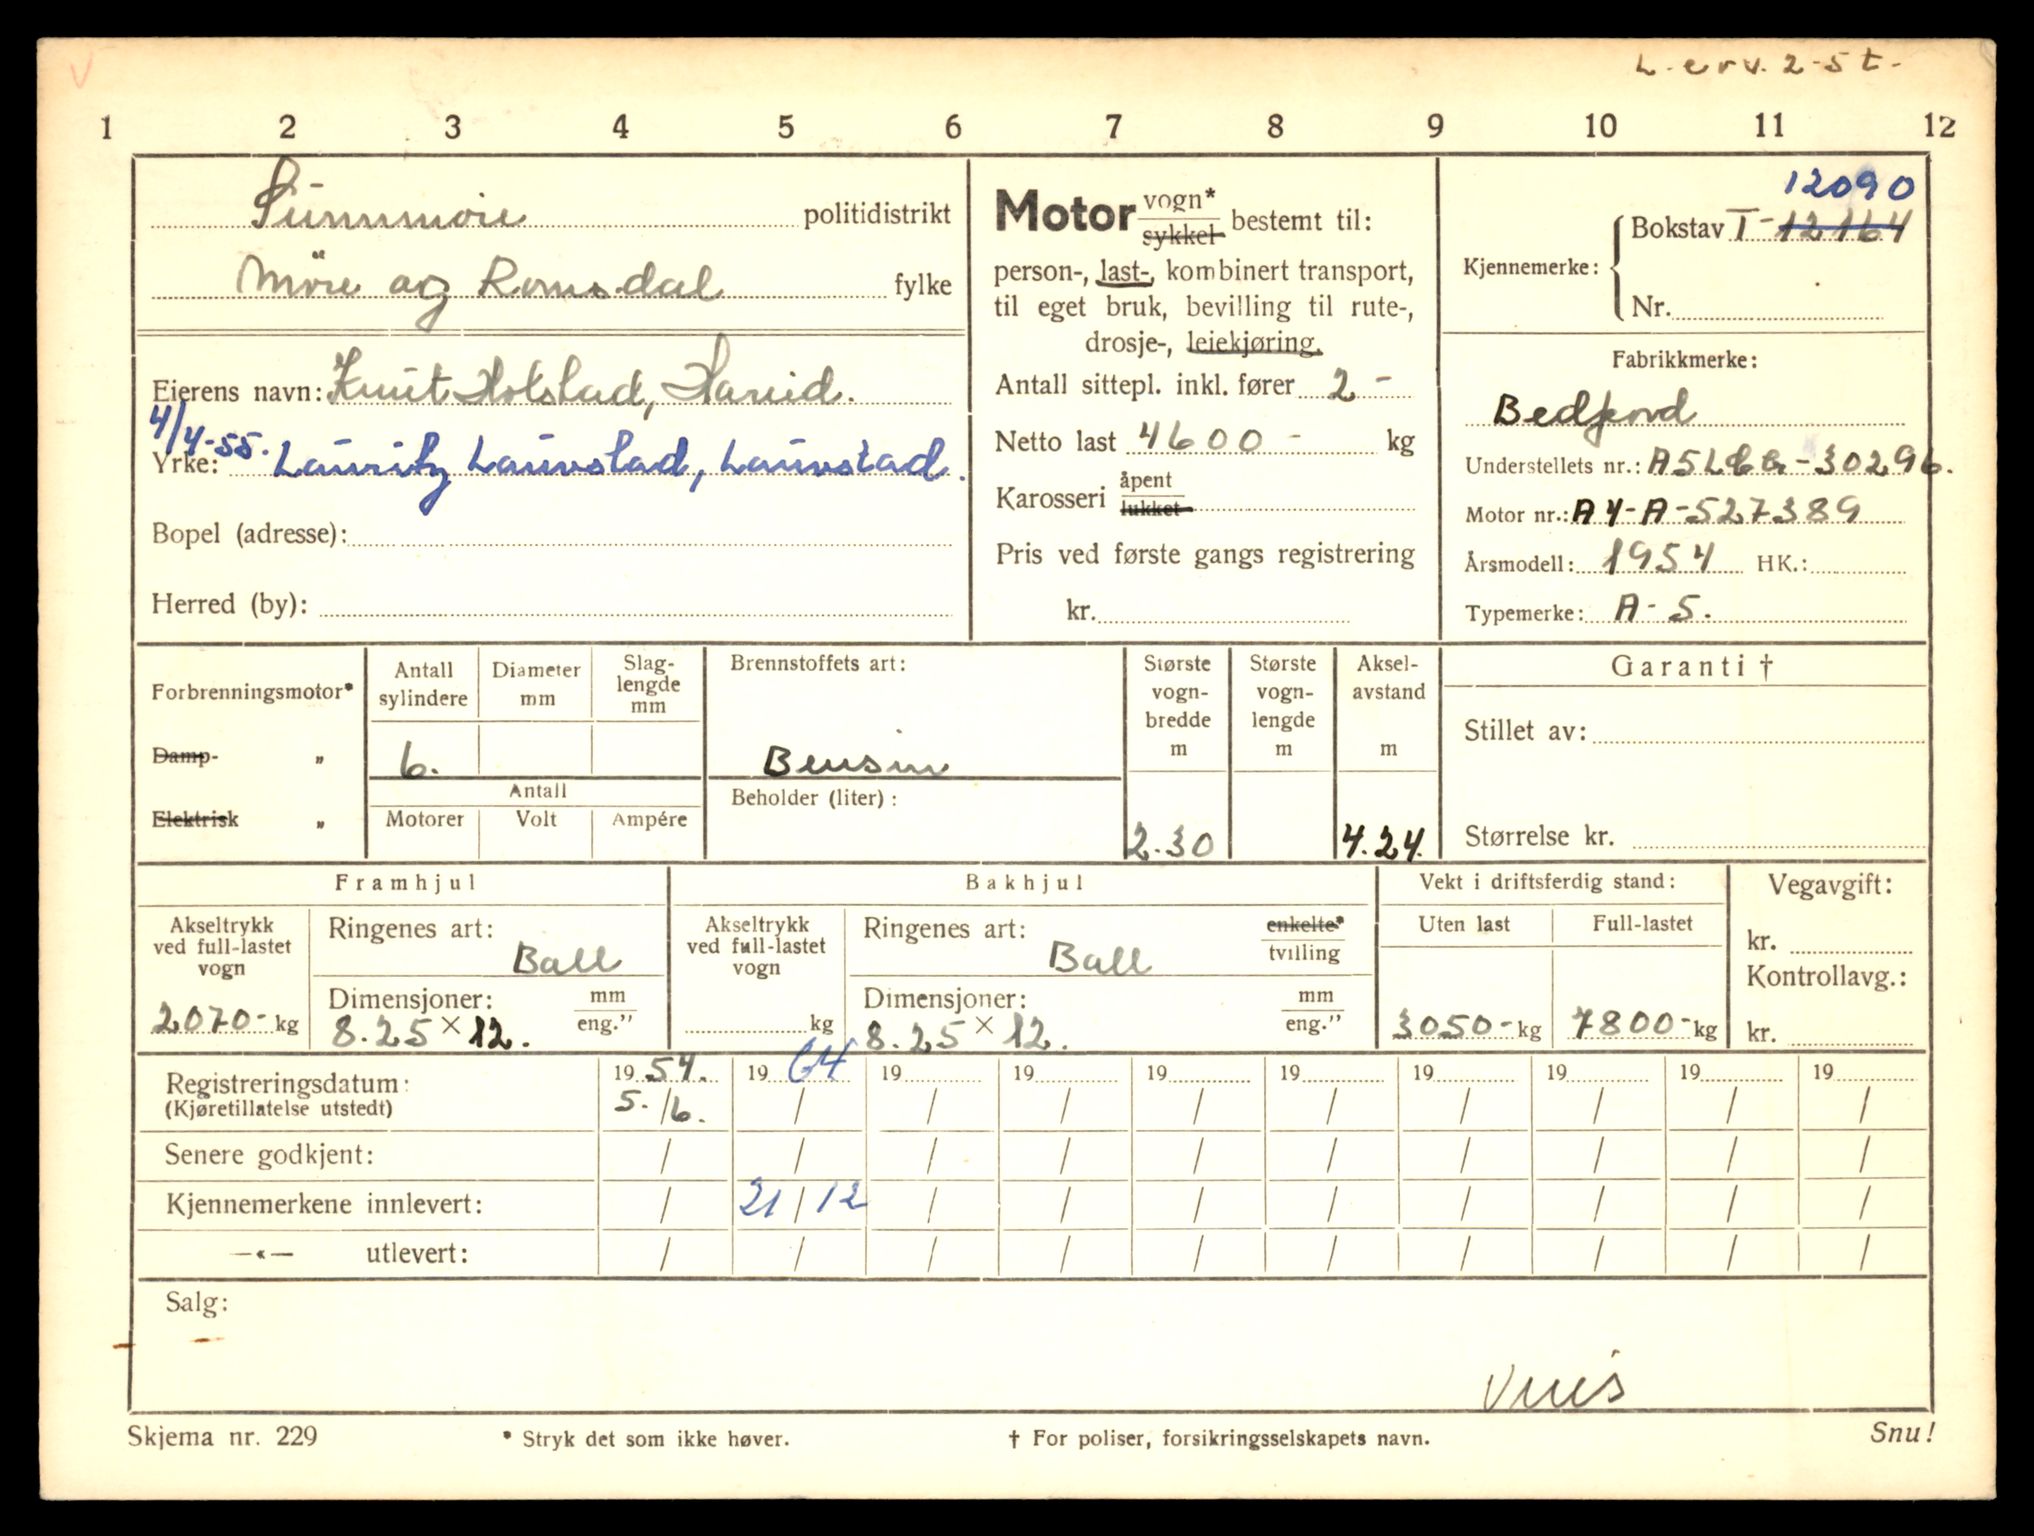 L. erv. 2-5 t.
1 2 3 4 5 6 7 8 9 10 11 12
Sunnmøre politidistrikt
Möre og Romsdal fylke
Eierens navn: Knut Holstad, Hareid.
4/4-55.
Yrke: Lauritz Lauvstad, Lauvstad.
Bopel (adresse):
Herred (by):
Motor vogn* sykkel bestemt til:
person-, last-, kombinert transport,
til eget bruk, bevilling til rute-,
drosje-, leiekjøring.
Antall sittepl. inkl. fører 2 -
Netto last 4600 - kg
Karosseri åpent lukket
Pris ved første gangs registrering
kr.
12090
Kjennemerke: Bokstav T- 12164
Nr.
Fabrikkmerke:
Bedford
Understellets nr.: 30296.
Motor nr.: A4-A-527389
Årsmodell: 1954 HK.:
Typemerke: A-5.
Forbrenningsmotor*
Damp- „
Elektrisk „
Antall sylindere
Diameter mm
Slag-lengde mm
6.
Antall
Motorer Volt Ampére
Brennstoffets art:
Bensin
Beholder (liter):
Største vogn-bredde m
2.30
Største vogn-lengde m
Aksel-avstand m
4.24.
Garanti †
Stillet av:
Størrelse kr.
Framhjul
Akseltrykk ved full-lastet vogn
2070- kg
Ringenes art: Ball
Dimensjoner: mm eng.”
8.25 × 12.
Bakhjul
Akseltrykk ved full-lastet vogn
kg
Ringenes art: enkelte* tvilling
Ball
Dimensjoner: mm eng.”
8.25 × 12.
Vekt i driftsferdig stand:
Uten last Full-lastet
3050- kg 7800- kg
Vegavgift:
kr.
Kontrollavg.:
kr.
Registreringsdatum: 19 54. 19 64 19 19 19 19 19 19 19 19
(Kjøretillatelse utstedt) 5. / 6. / / / / / / / / /
Senere godkjent: / / / / / / / / / /
Kjennemerkene innlevert: / 21 / 12 / / / / / / / /
—«— utlevert: / / / / / / / / / /
Salg:
Skjema nr. 229
* Stryk det som ikke høver.
† For poliser, forsikringsselskapets navn.
Snu!